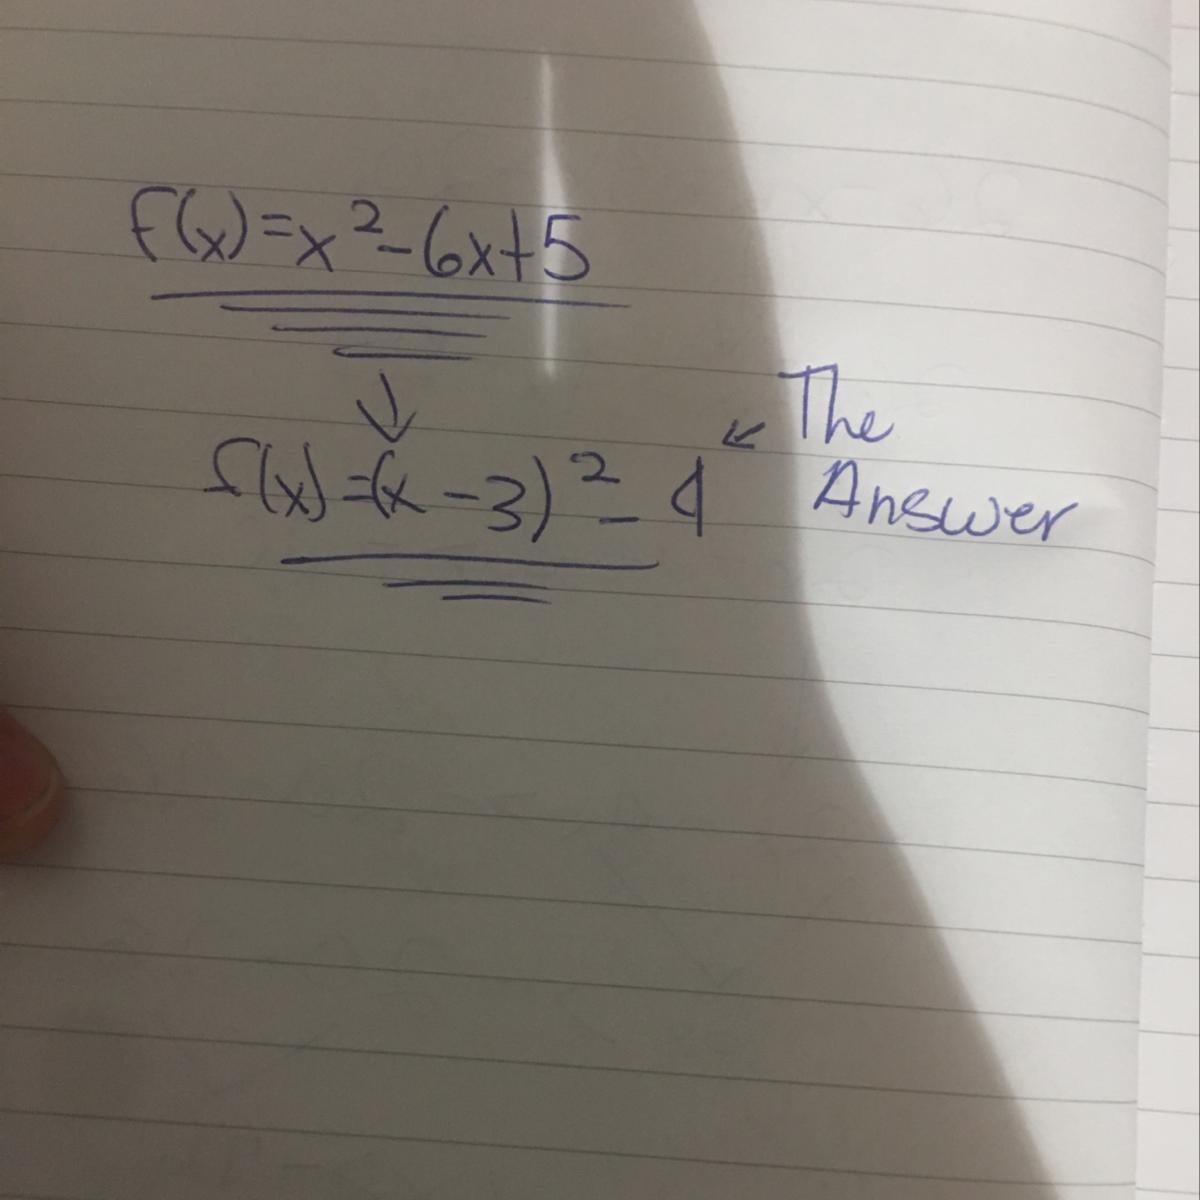 f(x)=x²-6x+5
↓
f(x)=(x-3)²-4 ← The
Answer